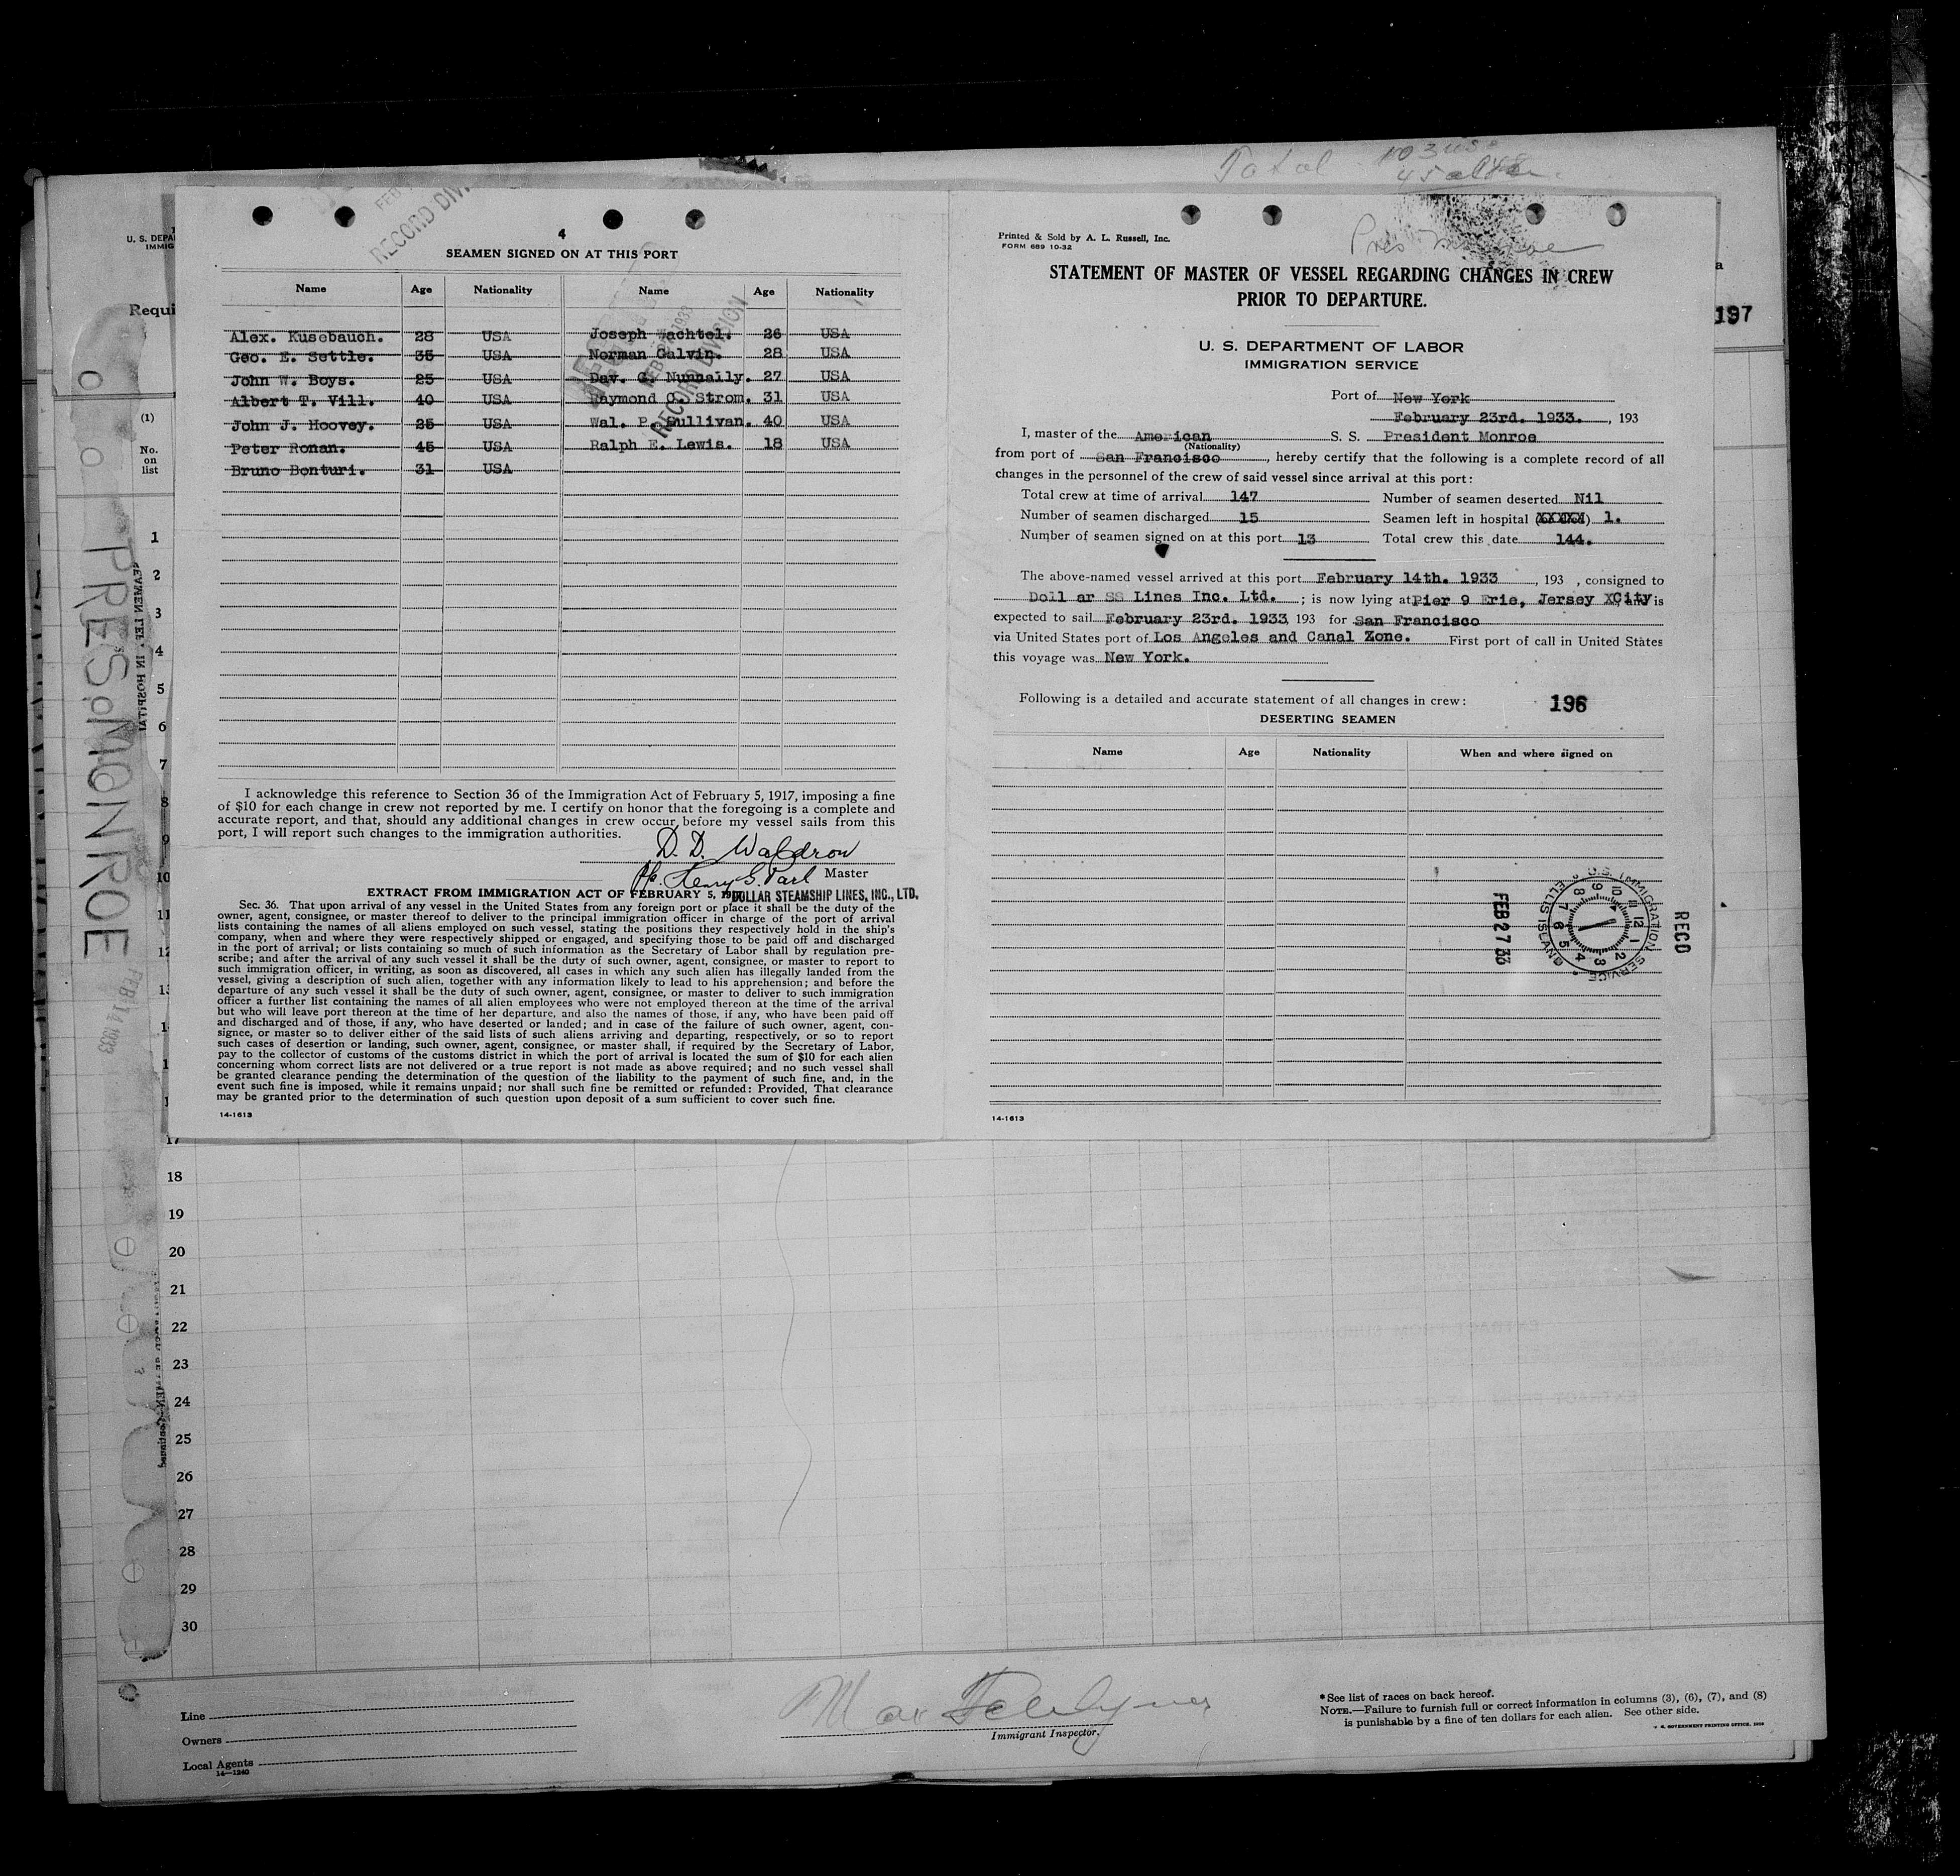 Total 103 us
45 alien
U. S. DEPA
IMMIG
Requi
(1)
No.
on
list
197
PRES. MONROE
FEB 14 1933
RECORD DIV
4
SEAMEN SIGNED ON AT THIS PORT
Name Age Nationality Name Age Nationality
Alex. Kusebauch. 28 USA Joseph Wachtel. 26 USA
Geo. E. Settle. 35 USA Norman Galvin. 28 USA
John W. Boys. 25 USA Dav. G. Nunnally. 27 USA
Albert T. Vill. 40 USA Raymond C. Strom. 31 USA
John J. Hoovey. 25 USA Wal. P. Sullivan. 40 USA
Peter Ronan. 45 USA Ralph E. Lewis. 18 USA
Bruno Bonturi. 31 USA
RECORD DIVISION
I acknowledge this reference to Section 36 of the Immigration Act of February 5, 1917, imposing a fine
of $10 for each change in crew not reported by me. I certify on honor that the foregoing is a complete and
accurate report, and that, should any additional changes in crew occur before my vessel sails from this
port, I will report such changes to the immigration authorities.
D. D. Waldron
Master
DOLLAR STEAMSHIP LINES, INC., LTD.
EXTRACT FROM IMMIGRATION ACT OF FEBRUARY 5, 19
Sec. 36. That upon arrival of any vessel in the United States from any foreign port or place it shall be the duty of the
owner, agent, consignee, or master thereof to deliver to the principal immigration officer in charge of the port of arrival
lists containing the names of all aliens employed on such vessel, stating the positions they respectively hold in the ship's
company, when and where they were respectively shipped or engaged, and specifying those to be paid off and discharged
in the port of arrival; or lists containing so much of such information as the Secretary of Labor shall by regulation pre-
scribe; and after the arrival of any such vessel it shall be the duty of such owner, agent, consignee, or master to report to
such immigration officer, in writing, as soon as discovered, all cases in which any such alien has illegally landed from the
vessel, giving a description of such alien, together with any information likely to lead to his apprehension; and before the
departure of any such vessel it shall be the duty of such owner, agent, consignee, or master to deliver to such immigration
officer a further list containing the names of all alien employees who were not employed thereon at the time of the arrival
but who will leave port thereon at the time of her departure, and also the names of those, if any, who have been paid off
and discharged and of those, if any, who have deserted or landed; and in case of the failure of such owner, agent, con-
signee, or master so to deliver either of the said lists of such aliens arriving and departing, respectively, or so to report
such cases of desertion or landing, such owner, agent, consignee, or master shall, if required by the Secretary of Labor,
pay to the collector of customs of the customs district in which the port of arrival is located the sum of $10 for each alien
concerning whom correct lists are not delivered or a true report is not made as above required; and no such vessel shall
be granted clearance pending the determination of the question of the liability to the payment of such fine, and, in the
event such fine is imposed, while it remains unpaid; nor shall such fine be remitted or refunded: Provided, That clearance
may be granted prior to the determination of such question upon deposit of a sum sufficient to cover such fine.
14-1613
Printed & Sold by A. L. Russell, Inc.
FORM 689 10-32
Pres Monroe
STATEMENT OF MASTER OF VESSEL REGARDING CHANGES IN CREW
PRIOR TO DEPARTURE.
U. S. DEPARTMENT OF LABOR
IMMIGRATION SERVICE
Port of New York
February 23rd. 1933. , 193
I, master of the American S. S. President Monroe
(Nationality)
from port of San Francisco , hereby certify that the following is a complete record of all
changes in the personnel of the crew of said vessel since arrival at this port:
Total crew at time of arrival 147 Number of seamen deserted Nil
Number of seamen discharged 15 Seamen left in hospital (XXXXX) 1.
Number of seamen signed on at this port 13 Total crew this date 144.
The above-named vessel arrived at this port February 14th. 1933 , 193 , consigned to
Doll ar SS Lines Inc. Ltd. ; is now lying at Pier 9 Erie, Jersey XCity, and is
expected to sail February 23rd. 1933 193 for San Francisco
via United States port of Los Angeles and Canal Zone. First port of call in United States
this voyage was New York.
Following is a detailed and accurate statement of all changes in crew: 196
DESERTING SEAMEN
Name Age Nationality When and where signed on
RECD
U.S. IMMIGRATION SERVICE ELLIS ISLAND
FEB 27 33
14-1613
1
2
3
4
5
6
7
8
9
10
11
12
13
17
18
19
20
21
22
23
24
25
26
27
28
29
30
Line
Owners
Local Agents
14-1240
Immigrant Inspector.
*See list of races on back hereof.
NOTE.—Failure to furnish full or correct information in columns (3), (6), (7), and (8)
is punishable by a fine of ten dollars for each alien. See other side.